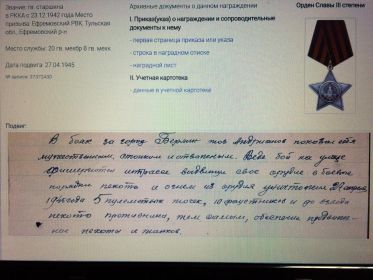 Звание: гв. старшина
в РККА с 23.12.1942 года Место
призыва: Ефремовский РВК, Тульская
обл., Ефремовский р-н
Место службы: 20 гв. мехбр 8 гв. мехк
Дата подвига: 27.04.1945
№ записи: 37372430
Архивные документы о данном награждении:
I. Приказ(указ) о награждении и сопроводительные
документы к нему
- первая страница приказа или указа
- строка в наградном списке
- наградной лист
II. Учетная картотека
- данные в учетной картотеке
Орден Славы III степени
Подвиг:
В боях за город Берлин тов Андрианов показал себя
мужественным, стойким и отважным. Ведя бой на улице
выдвинул свое орудие в боевые
порядки пехоты и огнем из орудия уничтожил
1945 года 5 пулеметных точек, 10 фаустников и до взвода
пехоты противника, тем самым, обеспечил продвиже-
ние пехоты и танков.